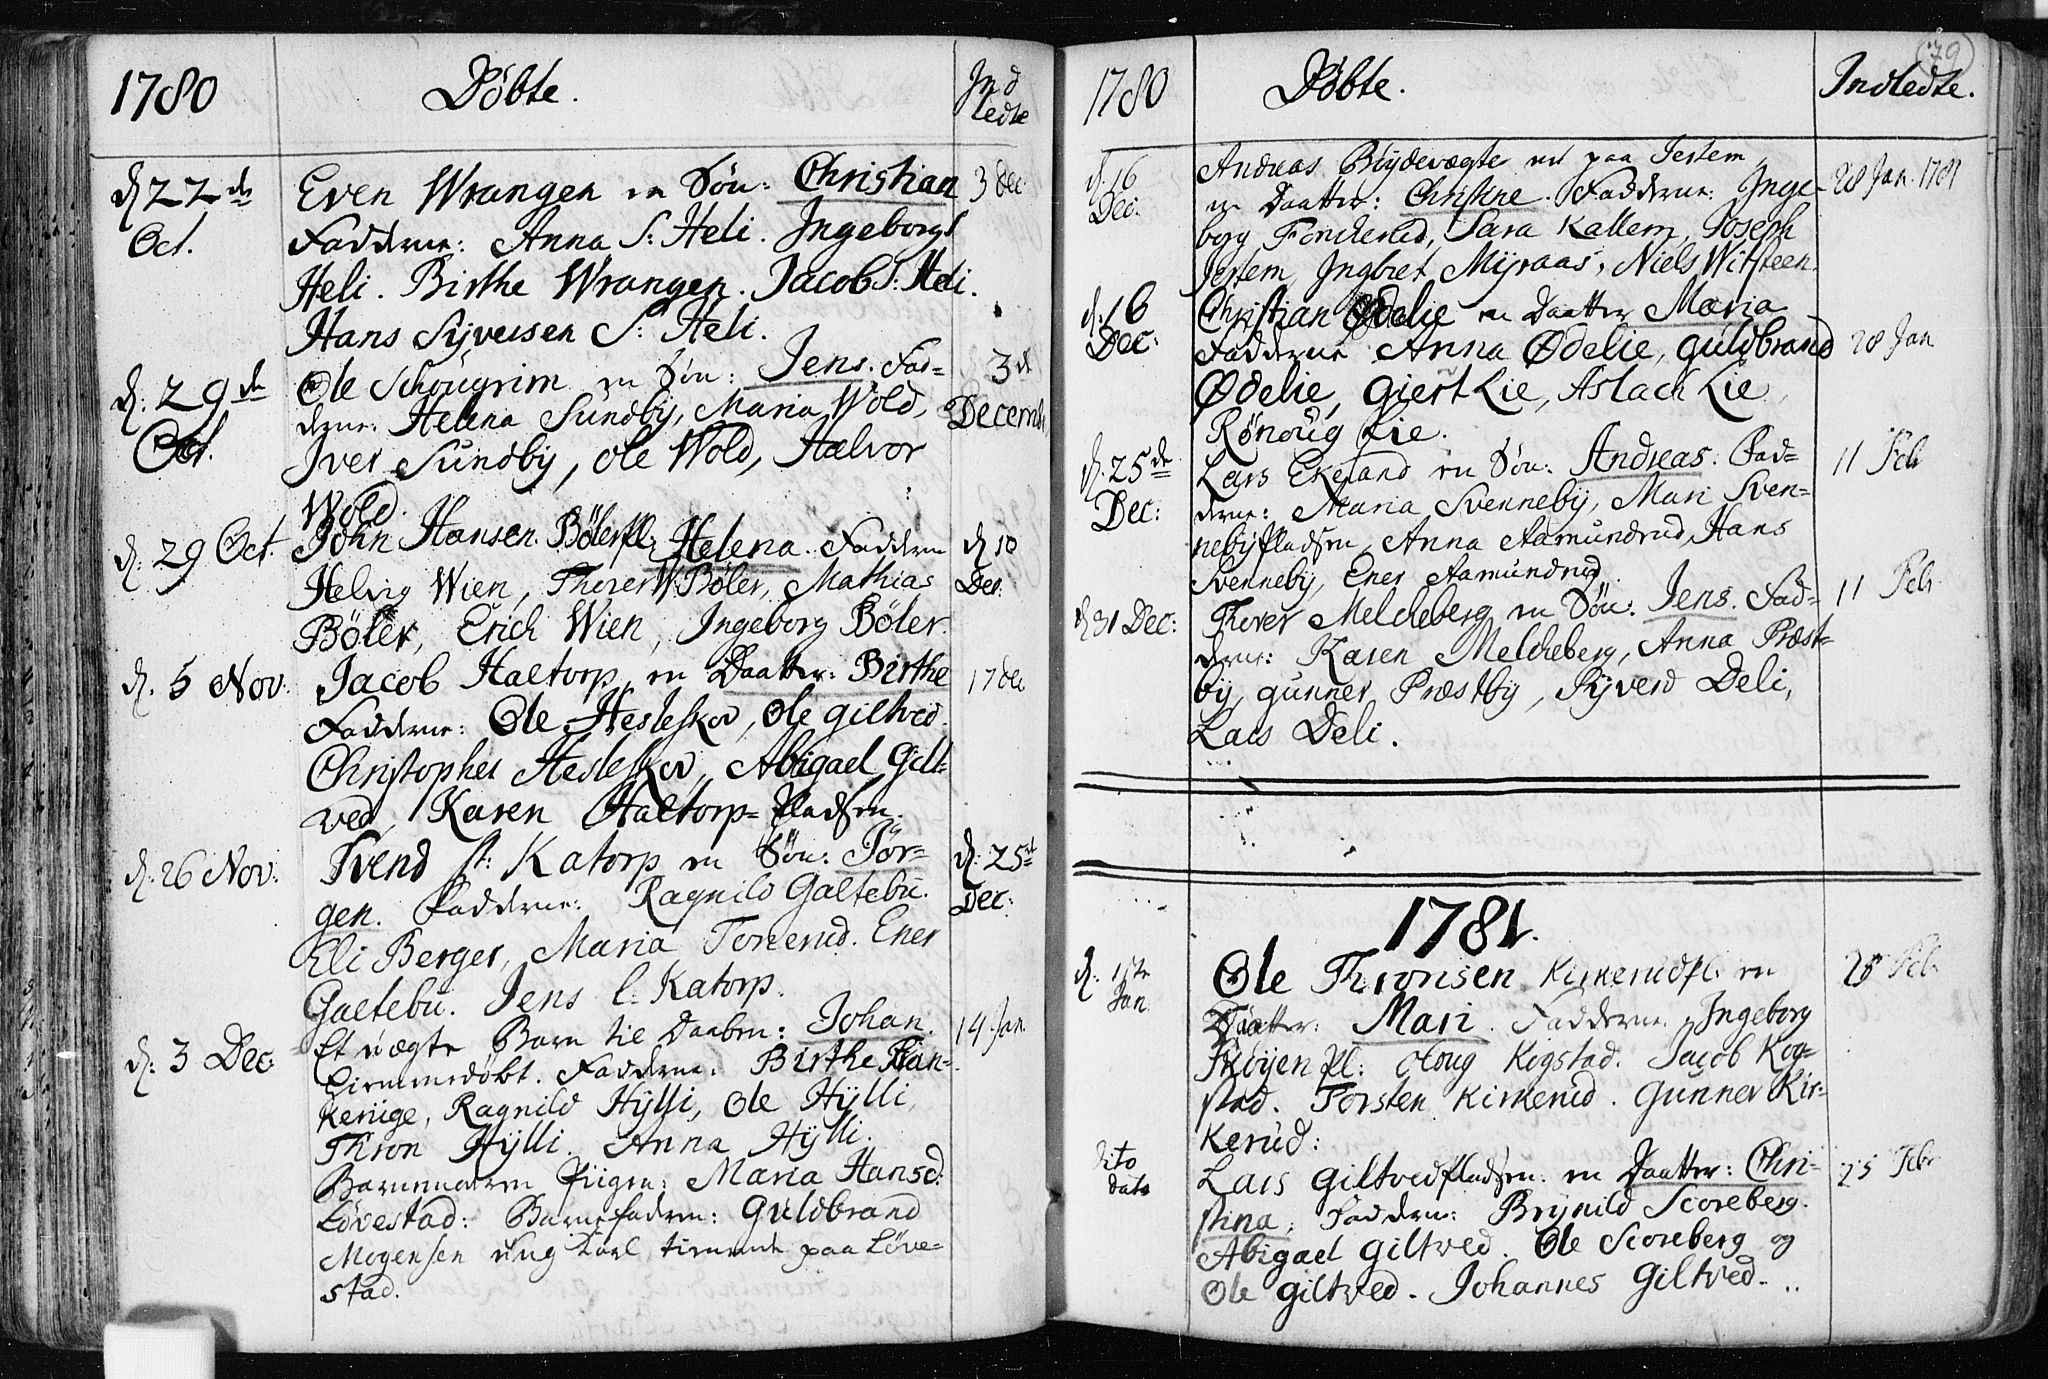 1780 Døbte. Ind
ledte
d. 22de Even Wrangen en Søn: Christian 3 Dec.
Oct. Fadderne: Anna S: Heli. Ingeborg S
Heli. Birthe Wrangen. Jacob S: Heli.
Hans Syversen S: Heli.
d. 29de Ole Schougrim en Søn: Jens. Fad= 3de
derne: Helena Sundby, Maria Wold, Decemb.
Oct. Iver Sundby, Ole Wold, Halvor
Wold.
d. 29 Oct. John Hansen Bølerpl: Helena. Fadderne d. 10
Helvig Wien, Thorer Bøler, Mathias Dec.
Bøler, Erich Wien, Ingeborg Bøler.
d. 5 Nov: Jacob Haltorp en Daatter: Birthe 17 Dec
Fadderne: Ole Hesleskov, Ole Giltved.
Christopher Hesleskov, Abigael Gilt=
ved, Karen Haltorp=pladsen.
d. 26 Nov: Svend st: Katorp en Søn: Jør= d. 25de
gen. Fadderne: Ragnild Galtebu. Dec:
Eli Berger, Maria Torrerud. Ener
Galtebu. Jens l: Katorp.
d. 3 Dec: Et uægte Barn til Daaben: Johan. 14 Jan.
Hiemmedøbt. Fadderne: Birthe Ran=
kerüge, Ragnild Hylli, Ole Hylli,
Thron Hylli. Anna Hylli.
Barnemoderen Pigen: Maria Hansd:
Løvestad: Barnefaderen: Guldbrand
Mogensen ung Karl tienende paa Løve=
stad.
79
1780 Døbte. Indledte.
d. 16 Andreas Brydevægte paa Jestem
Dec. en Daatter: Christine. Fadderne: Inge= 28 Jan. 1781
borg Fonderud, Sara Kallem, Joseph
Jestem, Ingbret Myraas, Niels Witsteen.
d. 16 Christian Ødelie en Daatter Maria
Dec: Fadderne Anna Ødelie, Guldbrand 28 Jan
Ødelie, Giert Lie, Aslach Lie,
Rønoug Lie.
d. 25de Lars Ekeland en Søn: Andreas. Fad= 11 Feb
Dec: derne: Maria Svenneby, Mari Sven=
nebypladsen, Anna Aamundrud, Hans
Svenneby, Ener Aamundrud.
d 31 Dec: Thorer Melcheberg en Søn: Jens. Fad= 11 Feb.
derne: Karen Melcheberg, Anna Præst=
by, Gunner Præstby, Syverd Deli,
Lars Deli.
1781.
d. 1ste Ole Thronsen Kirkerudpl: en 25 Feb.
Jan. Daatter: Mari. Fadderne. Ingeborg
Skøyen pl: Aloug Kogstad. Jacob Kog=
stad. Torsten Kirkerud. Gunner Kir=
kerud:
dito Lars Giltvedpladsen: en Daatter: Chri= 25 Febr
dato stina, Fadderne: Brynild Scoreberg.
Abigael Giltved. Ole Scoreberg og
Ole Giltved. Johannes Giltved.